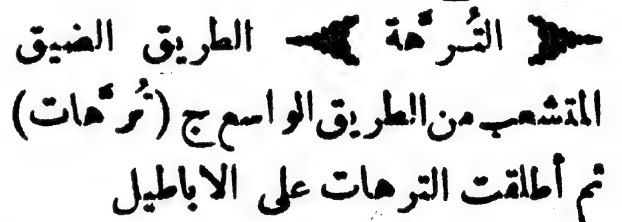 ﴿ التُّرَّهة ﴾ الطريق الضيق
المتشعب من الطريق الواسع ج (تُرَّهات)
ثم أطلقت الترهات على الاباطيل